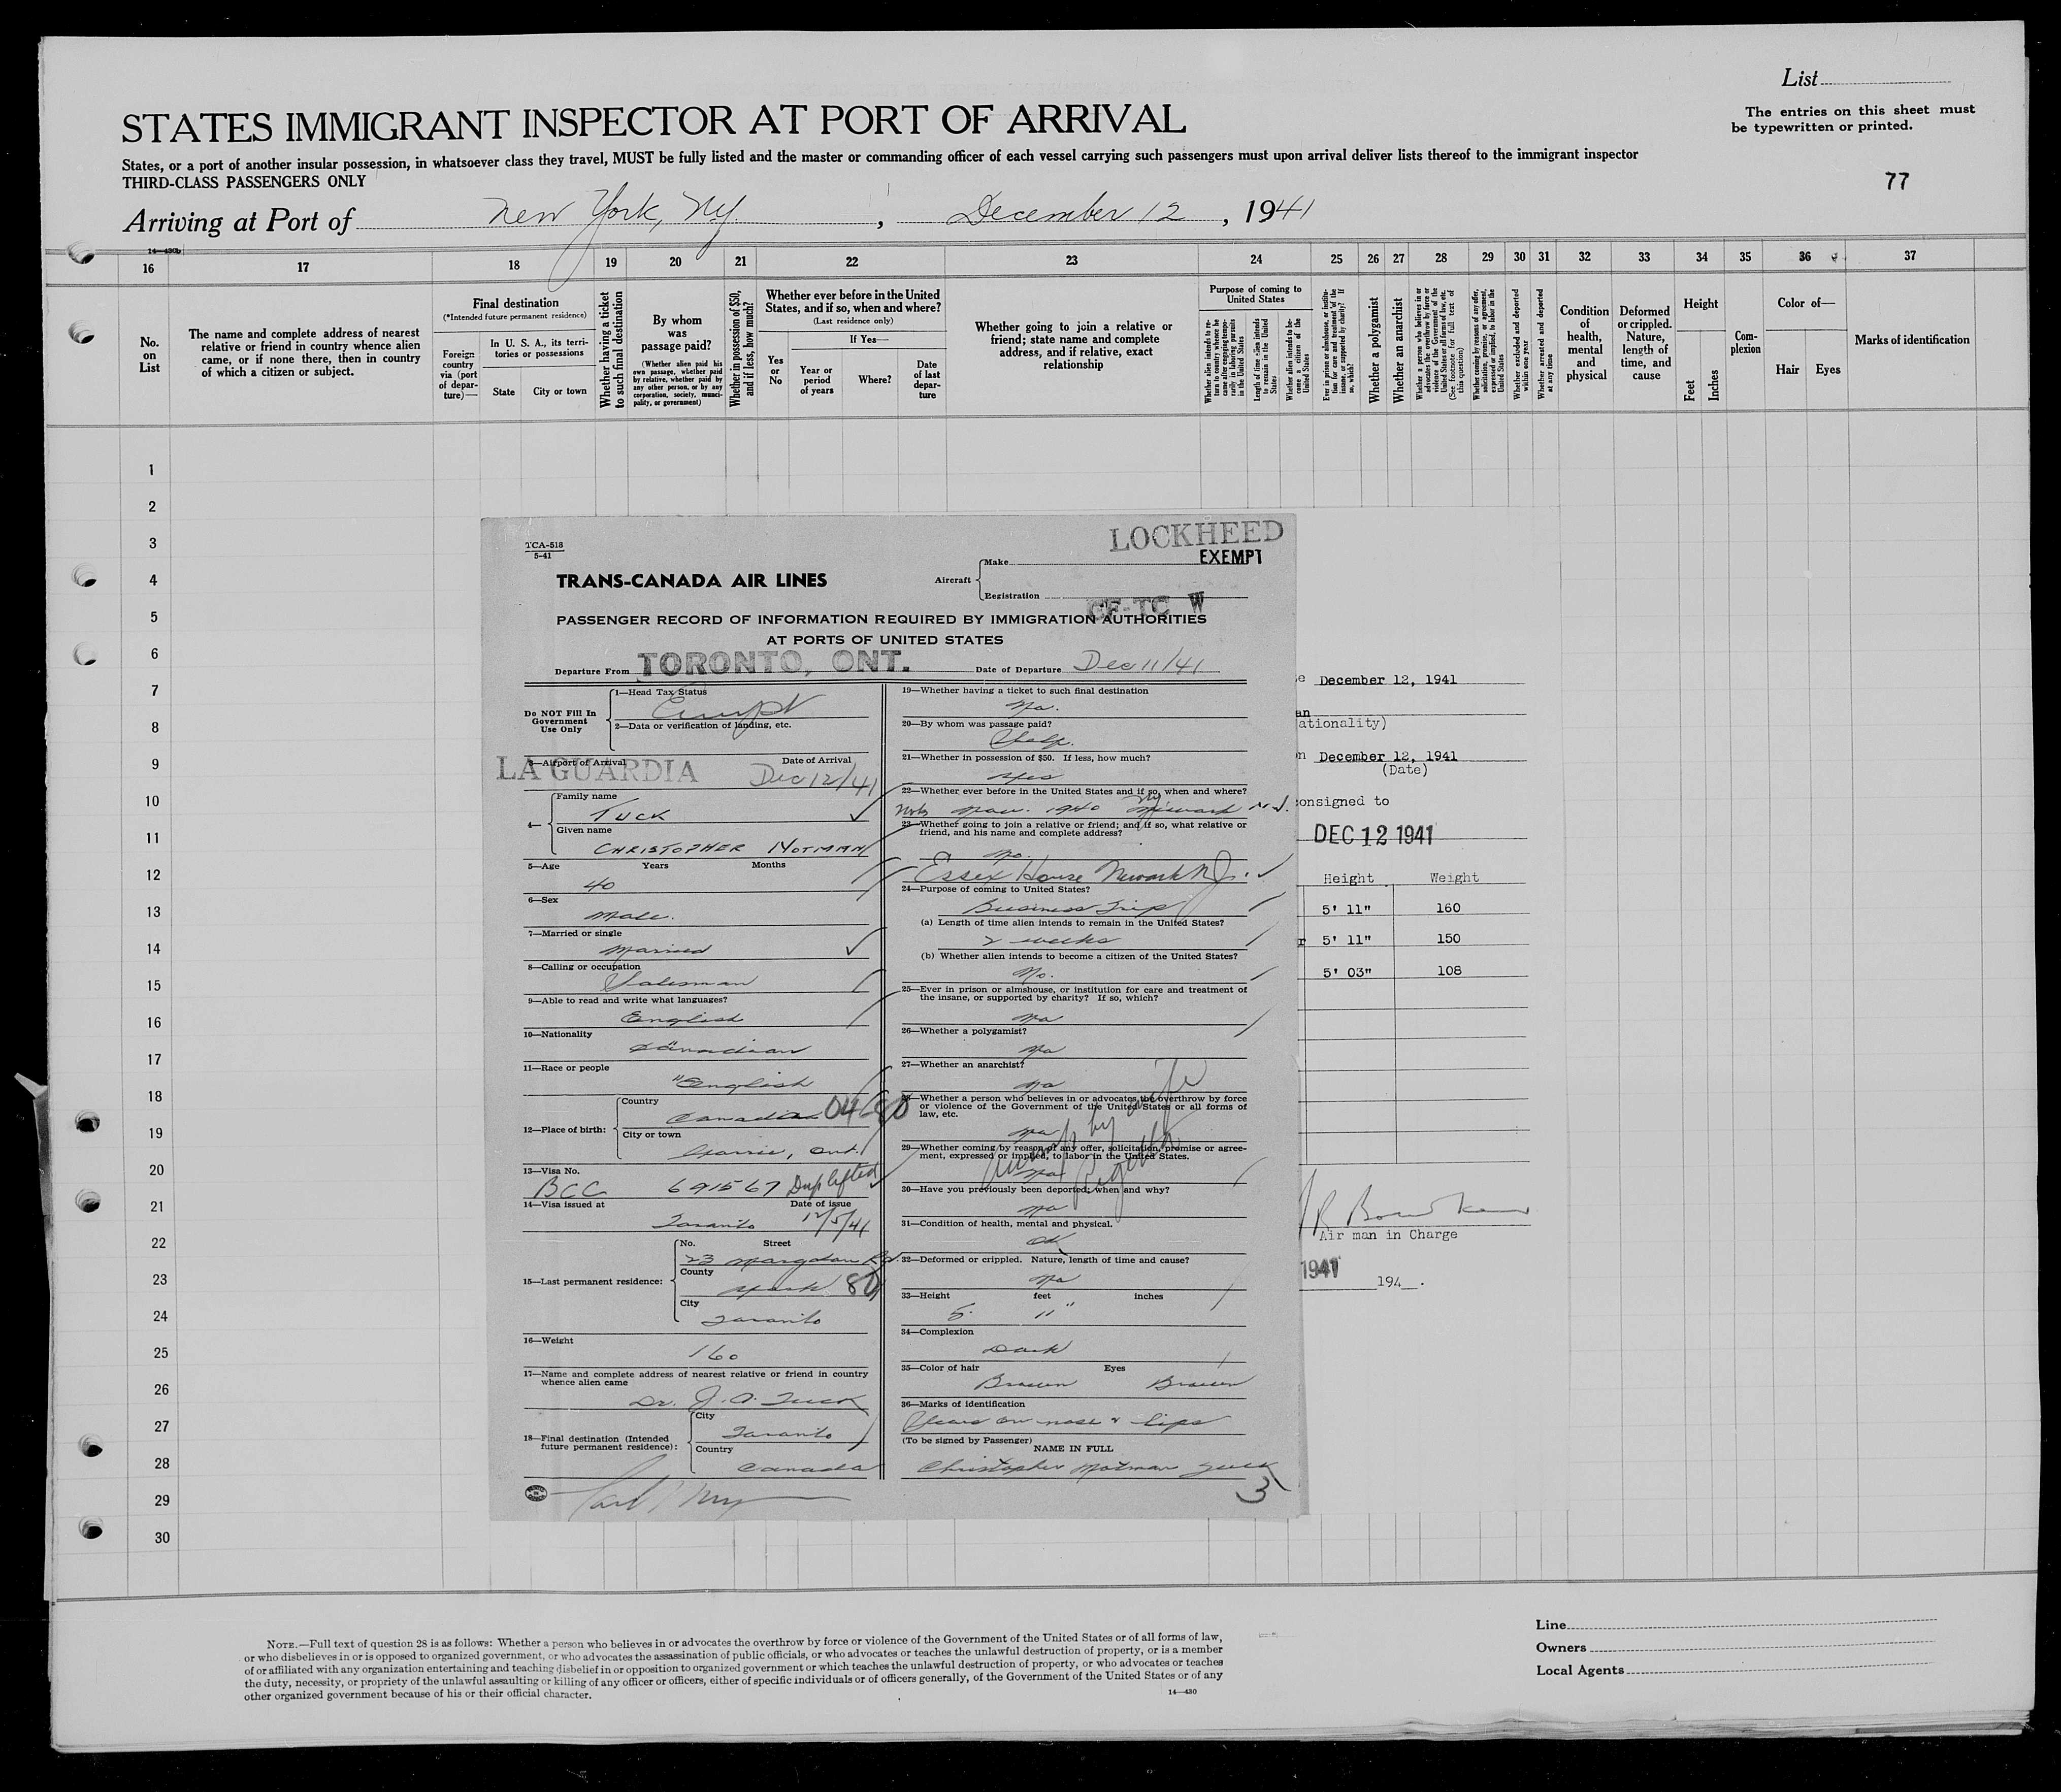 List
STATES IMMIGRANT INSPECTOR AT PORT OF ARRIVAL
The entries on this sheet must
be typewritten or printed.
States, or a port of another insular possession, in whatsoever class they travel, MUST be fully listed and the master or commanding officer of each vessel carrying such passengers must upon arrival deliver lists thereof to the immigrant inspector
THIRD-CLASS PASSENGERS ONLY
77
Arriving at Port of New York, NY. , December 12 , 1941
16 17 18 19 20 21 22 23 24 25 26 27 28 29 30 31 32 33 34 35 36 37
No. on List
The name and complete address of nearest relative or friend in country whence alien came, or if none there, then in country of which a citizen or subject.
Final destination
(*Intended future permanent residence)
Foreign country via (port of departure)—
In U. S. A., its territories or possessions
State City or town
Whether having a ticket to such final destination
By whom was passage paid?
(Whether alien paid his own passage, whether paid by relative, whether paid by any other person, or by any corporation, society, municipality, or government)
Whether in possession of $50, and if less, how much?
Whether ever before in the United States, and if so, when and where?
(Last residence only)
Yes or No
If Yes—
Year or period of years
Where?
Date of last departure
Whether going to join a relative or friend; state name and complete address, and if relative, exact relationship
Purpose of coming to United States
Whether alien intends to return to country whence he came after engaging temporarily in laboring pursuits in the United States
Length of time alien intends to remain in the United States
Whether alien intends to become a citizen of the United States
Ever in prison or almshouse, or institution for care and treatment of the insane, or supported by charity? If so, which?
Whether a polygamist
Whether an anarchist
Whether a person who believes in or advocates the overthrow by force or violence of the Government of the United States or all forms of law, etc. (See footnote for full text of this question)
Whether coming by reasons of any offer, solicitation, promise, or agreement, expressed or implied, to labor in the United States
Whether excluded and deported within one year
Whether arrested and deported at any time
Condition of health, mental and physical
Deformed or crippled. Nature, length of time, and cause
Height
Feet Inches
Complexion
Color of—
Hair Eyes
Marks of identification
1
2
3
4
5
6
7
8
9
10
11
12
13
14
15
16
17
18
19
20
21
22
23
24
25
26
27
28
29
30
TCA-518
5-41
LOCKHEED
EXEMPT
TRANS-CANADA AIR LINES
Aircraft
Make
Registration CF-TC W
PASSENGER RECORD OF INFORMATION REQUIRED BY IMMIGRATION AUTHORITIES
AT PORTS OF UNITED STATES
Departure From TORONTO, ONT. Date of Departure Dec 11/41
Do NOT Fill In Government Use Only
1—Head Tax Status
Exempt
2—Data or verification of landing, etc.
3—Airport of Arrival Date of Arrival
LA GUARDIA Dec 12/41
4— Family name
TUCK
Given name
CHRISTOPHER NOTMAN
5—Age Years Months
40
6—Sex
Male.
7—Married or single
Married
8—Calling or occupation
Salesman
9—Able to read and write what languages?
English
10—Nationality
Canadian
11—Race or people
English
12—Place of birth:
Country
Canadian 04680
City or town
Gorrie, Ont.
13—Visa No.
BCC 691567 Dup lifted
14—Visa issued at Date of issue
Toronto 12/5/41
15—Last permanent residence:
No. Street
23 Rd.
County
York 80
City
Toronto
16—Weight
160
17—Name and complete address of nearest relative or friend in country
whence alien came
Dr. J. A. Tuck
18—Final destination (Intended
future permanent residence):
City
Toronto
Country
Canada
19—Whether having a ticket to such final destination
No.
20—By whom was passage paid?
Self.
21—Whether in possession of $50. If less, how much?
Yes
22—Whether ever before in the United States and if so, when and where?
Nov. 1940 Newark N.J.
23—Whether going to join a relative or friend; and if so, what relative or
friend, and his name and complete address?
No.
Essex House Newark NJ.
24—Purpose of coming to United States?
Business Trip
(a) Length of time alien intends to remain in the United States?
2 weeks
(b) Whether alien intends to become a citizen of the United States?
No.
25—Ever in prison or almshouse, or institution for care and treatment of
the insane, or supported by charity? If so, which?
No
26—Whether a polygamist?
No
27—Whether an anarchist?
No
28—Whether a person who believes in or advocates the overthrow by force
or violence of the Government of the United States or all forms of
law, etc.
No
by wife
29—Whether coming by reason of any offer, solicitation, promise or agree-
ment, expressed or implied, to labor in the United States.
No
30—Have you previously been deported; when and why?
No
31—Condition of health, mental and physical.
OK
32—Deformed or crippled. Nature, length of time and cause?
No
33—Height feet inches
5 11"
34—Complexion
Dark
35—Color of hair Eyes
Brown Brown
36—Marks of identification
Scars on nose & lips
(To be signed by Passenger)
NAME IN FULL
Christopher Notman Tuck
3
e December 12, 1941
an
ationality)
n December 12, 1941
(Date)
onsigned to
DEC 12 1941
Height Weight
5' 11" 160
r 5' 11" 150
5' 03" 108
Air man in Charge
1941
194 .
NOTE.—Full text of question 28 is as follows: Whether a person who believes in or advocates the overthrow by force or violence of the Government of the United States or of all forms of law,
or who disbelieves in or is opposed to organized government, or who advocates the assassination of public officials, or who advocates or teaches the unlawful destruction of property, or is a member
of or affiliated with any organization entertaining and teaching disbelief in or opposition to organized government or which teaches the unlawful destruction of property, or who advocates or teaches
the duty, necessity, or propriety of the unlawful assaulting or killing of any officer or officers, either of specific individuals or of officers generally, of the Government of the United States or of any
other organized government because of his or their official character.
14—430
Line
Owners
Local Agents